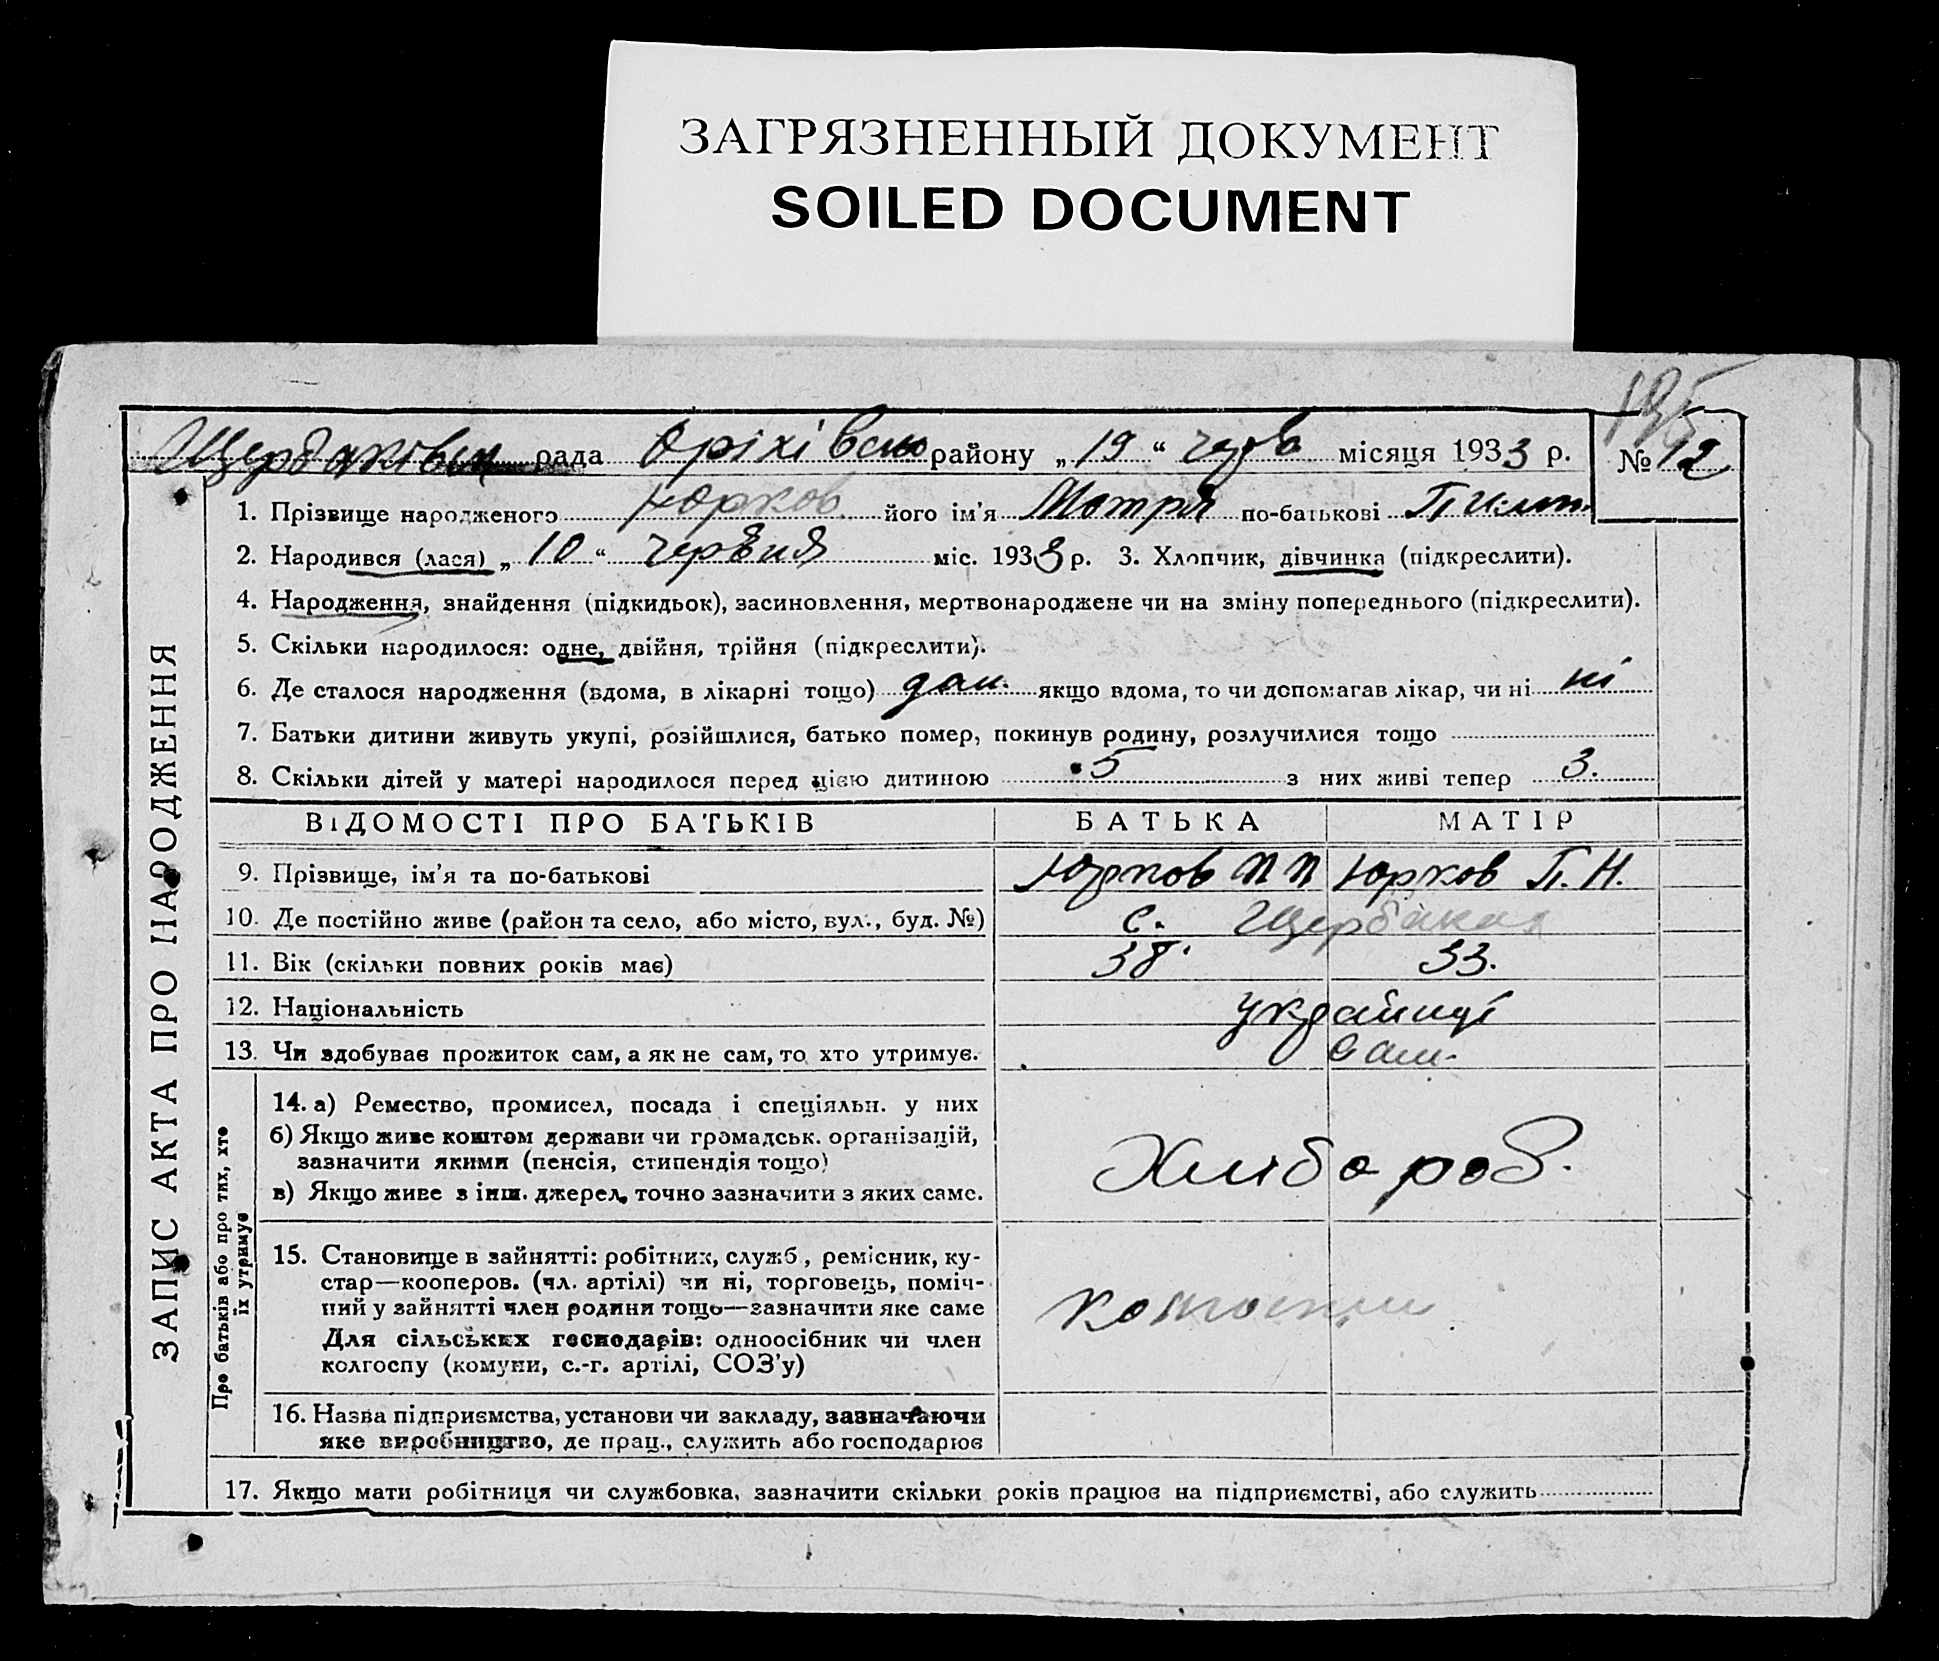 ЗАГРЯЗНЕННЫЙ ДОКУМЕНТ
SOILED DOCUMENT
195
рада Оріхівсько району „19“ місяця 1933 р. № 12
1. Прізвище народженого Юрков його ім'я Мотря по-батькові Пилип.
2. Народився (лася) „10“ червня міс. 1933 р. 3. Хлопчик, дівчинка (підкреслити).
4. Народження, знайдення (підкидьок), засиновлення, мертвонароджене чи на зміну попереднього (підкреслити).
5. Скільки народилося: одне, двійня, трійня (підкреслити).
6. Де сталося народження (вдома, в лікарні тощо) якщо вдома, то чи допомагав лікар, чи ні ні
7. Батьки дитини живуть укупі, розійшлися, батько помер, покинув родину, розлучилися тощо
8. Скільки дітей у матері народилося перед цією дитиною 5 з них живі тепер 3.
ВІДОМОСТІ ПРО БАТЬКІВ БАТЬКА МАТІР
9. Прізвище, ім'я та по-батькові Юрков П П Юрков П. Н.
10. Де постійно живе (район та село, або місто, вул., буд. №) с. Щербаках
11. Вік (скільки повних років має) 38. 33.
12. Національність українці
13. Чи здобуває прожиток сам, а як не сам, то хто утримує. сам.
14. а) Ремество, промисел, посада і спеціяльн. у них
б) Якщо живе коштом держави чи громадськ. організацій,
зазначити якими (пенсія, стипендія тощо)
в) Якщо живе з інш. джерел, точно зазначити з яких саме.
Хлібороб.
15. Становище в зайнятті: робітник, служб., ремісник, ку-
стар—кооперов. (чл. артілі) чи ні, торговець, поміч-
ний у зайнятті член родини тощо—зазначити яке саме
Для сільських господарів: одноосібник чи член
колгоспу (комуни, с.-г. артілі, СОЗ'у)
16. Назва підприємства, установи чи закладу, зазначаючи
яке виробництво, де прац., служить або господарює
17. Якщо мати робітниця чи службовка, зазначити скільки років працює на підприємстві, або служить
ЗАПИС АКТА ПРО НАРОДЖЕННЯ
Про батьків або про тих, хто
їх утримує